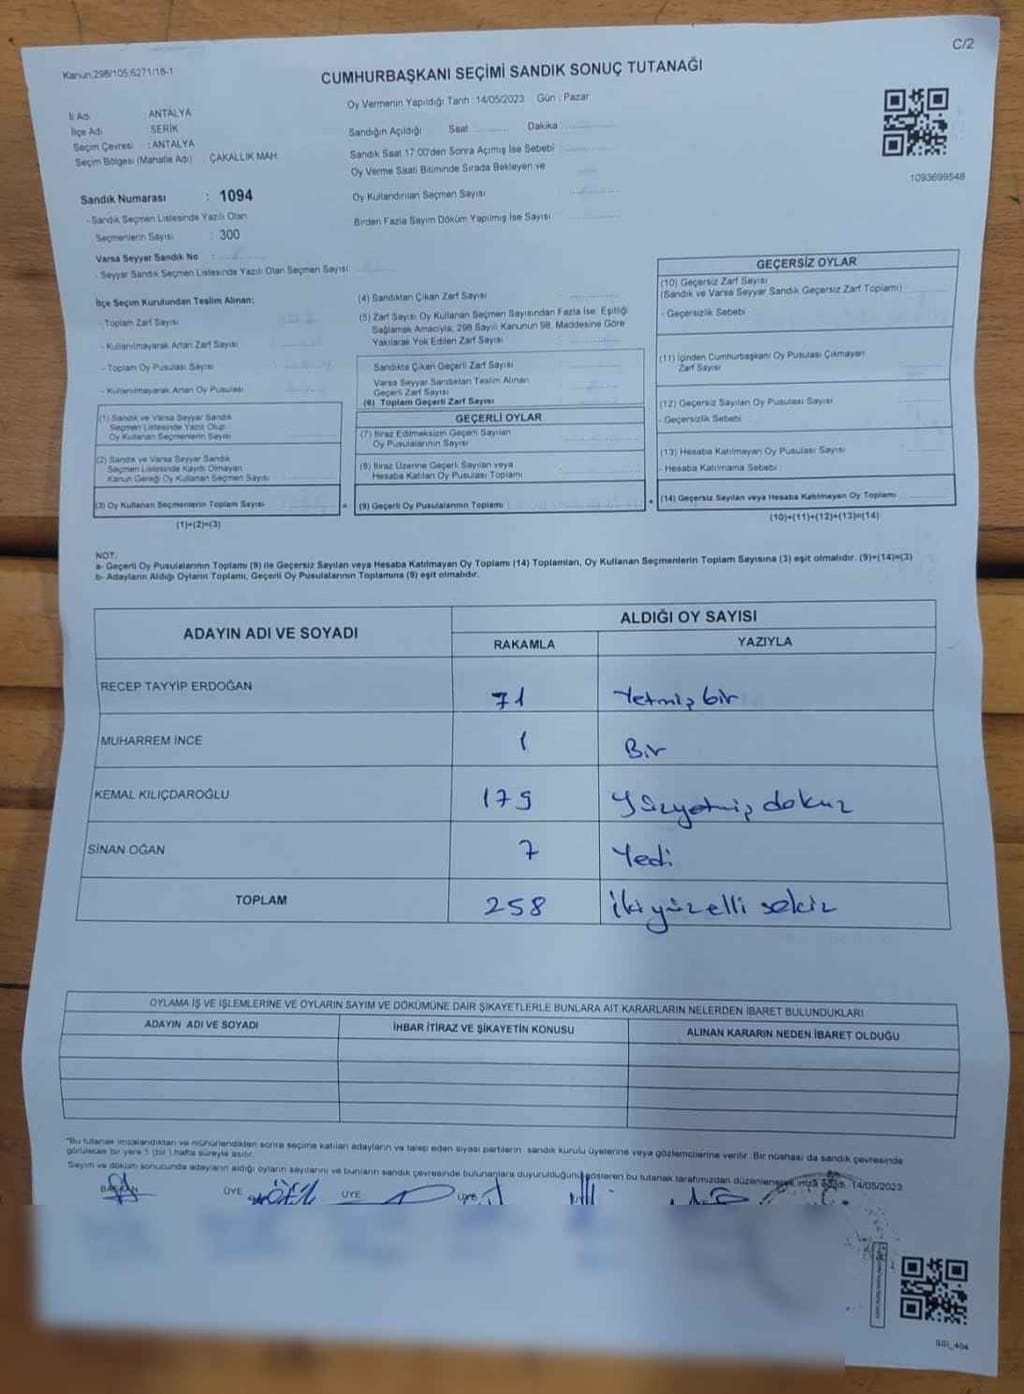 Kanun;298/105;6271/18-1
C/2
CUMHURBAŞKANI SEÇİMİ SANDIK SONUÇ TUTANAĞI
Oy Vermenin Yapıldığı Tarih : 14/05/2023 Gün : Pazar
İl Adı : ANTALYA
İlçe Adı : SERİK
Seçim Çevresi : ANTALYA
Seçim Bölgesi (Mahalle Adı) : ÇAKALLIK MAH
Sandık Numarası : 1094
- Sandık Seçmen Listesinde Yazılı Olan
Seçmenlerin Sayısı : 300
Varsa Seyyar Sandık No :
- Seyyar Sandık Seçmen Listesinde Yazılı Olan Seçmen Sayısı
Sandığın Açıldığı Saat ............ Dakika : ............
Sandık Saat 17:00'den Sonra Açımış İse Sebebi
Oy Verme Saati Bitiminde Sırada Bekleyen ve
Oy Kullandırılan Seçmen Sayısı
Birden Fazla Sayım Döküm Yapılmış İse Sayısı
1093699548
İlçe Seçim Kurulundan Teslim Alınan;
- Toplam Zarf Sayısı
- Kullanılmayarak Artan Zarf Sayısı
- Toplam Oy Pusulası Sayısı
- Kullanılmayarak Artan Oy Pusulası
(1) Sandık ve Varsa Seyyar Sandık
Seçmen Listesinde Yazılı Olup
Oy Kullanan Seçmenlerin Sayısı
(2) Sandık ve Varsa Seyyar Sandık
Seçmen Listesinde Kayıtlı Olmayan
Kanun Gereği Oy Kullanan Seçmen Sayısı
(3) Oy Kullanan Seçmenlerin Toplam Sayısı
=
(1)+(2)=(3)
(4) Sandıktan Çıkan Zarf Sayısı
(5) Zarf Sayısı Oy Kullanan Seçmen Sayısından Fazla İse, Eşitliği
Sağlamak Amacıyla; 298 Sayılı Kanunun 98. Maddesine Göre
Yakılarak Yok Edilen Zarf Sayısı
Sandıkta Çıkan Geçerli Zarf Sayısı
Varsa Seyyar Sandıktan Teslim Alınan
Geçerli Zarf Sayısı
(6) Toplam Geçerli Zarf Sayısı
GEÇERLİ OYLAR
(7) İtiraz Edilmeksizin Geçerli Sayılan
Oy Pusulalarının Sayısı
(8) İtiraz Üzerine Geçerli Sayılan veya
Hesaba Katılan Oy Pusulası Toplamı
(9) Geçerli Oy Pusulalarının Toplamı
+
GEÇERSİZ OYLAR
(10) Geçersiz Zarf Sayısı
(Sandık ve Varsa Seyyar Sandık Geçersiz Zarf Toplamı)
- Geçersizlik Sebebi
(11) İçinden Cumhurbaşkanı Oy Pusulası Çıkmayan
Zarf Sayısı
(12) Geçersiz Sayılan Oy Pusulası Sayısı
- Geçersizlik Sebebi
(13) Hesaba Katılmayan Oy Pusulası Sayısı
- Hesaba Katılmama Sebebi
(14) Geçersiz Sayılan veya Hesaba Katılmayan Oy Toplamı
(10)+(11)+(12)+(13)=(14)
NOT:
a- Geçerli Oy Pusulalarının Toplamı (9) ile Geçersiz Sayılan veya Hesaba Katılmayan Oy Toplamı (14) Toplamları, Oy Kullanan Seçmenlerin Toplam Sayısına (3) eşit olmalıdır. (9)+(14)=(3)
b- Adayların Aldığı Oyların Toplamı, Geçerli Oy Pusulalarının Toplamına (9) eşit olmalıdır.
ADAYIN ADI VE SOYADI
ALDIĞI OY SAYISI
RAKAMLA YAZIYLA
RECEP TAYYİP ERDOĞAN 71 Yetmiş bir
MUHARREM İNCE 1 Bir
KEMAL KILIÇDAROĞLU 179 Yüzyetmiş dokuz
SİNAN OĞAN 7 Yedi
TOPLAM 258 İkiyüzelli sekiz
OYLAMA İŞ VE İŞLEMLERİNE VE OYLARIN SAYIM VE DÖKÜMÜNE DAİR ŞİKAYETLERLE BUNLARA AİT KARARLARIN NELERDEN İBARET BULUNDUKLARI
ADAYIN ADI VE SOYADI İHBAR İTİRAZ VE ŞİKAYETİN KONUSU ALINAN KARARIN NEDEN İBARET OLDUĞU
"Bu tutanak imzalandıktan ve mühürlendikten sonra seçime katılan adayların ve talep eden siyasi partilerin sandık kurulu üyelerine veya gözlemcilerine verilir. Bir nüshası da sandık çevresinde
görülecek bir yere 1 (bir) hafta süreyle asılır.
Sayım ve döküm sonucunda adayların aldığı oyların sayılarını ve bunların sandık çevresinde bulunanlara duyurulduğunu gösteren bu tutanak tarafımızdan düzenlenerek imza edildi. 14/05/2023
BAŞKAN ÜYE ÜYE ÜYE
SBI_404